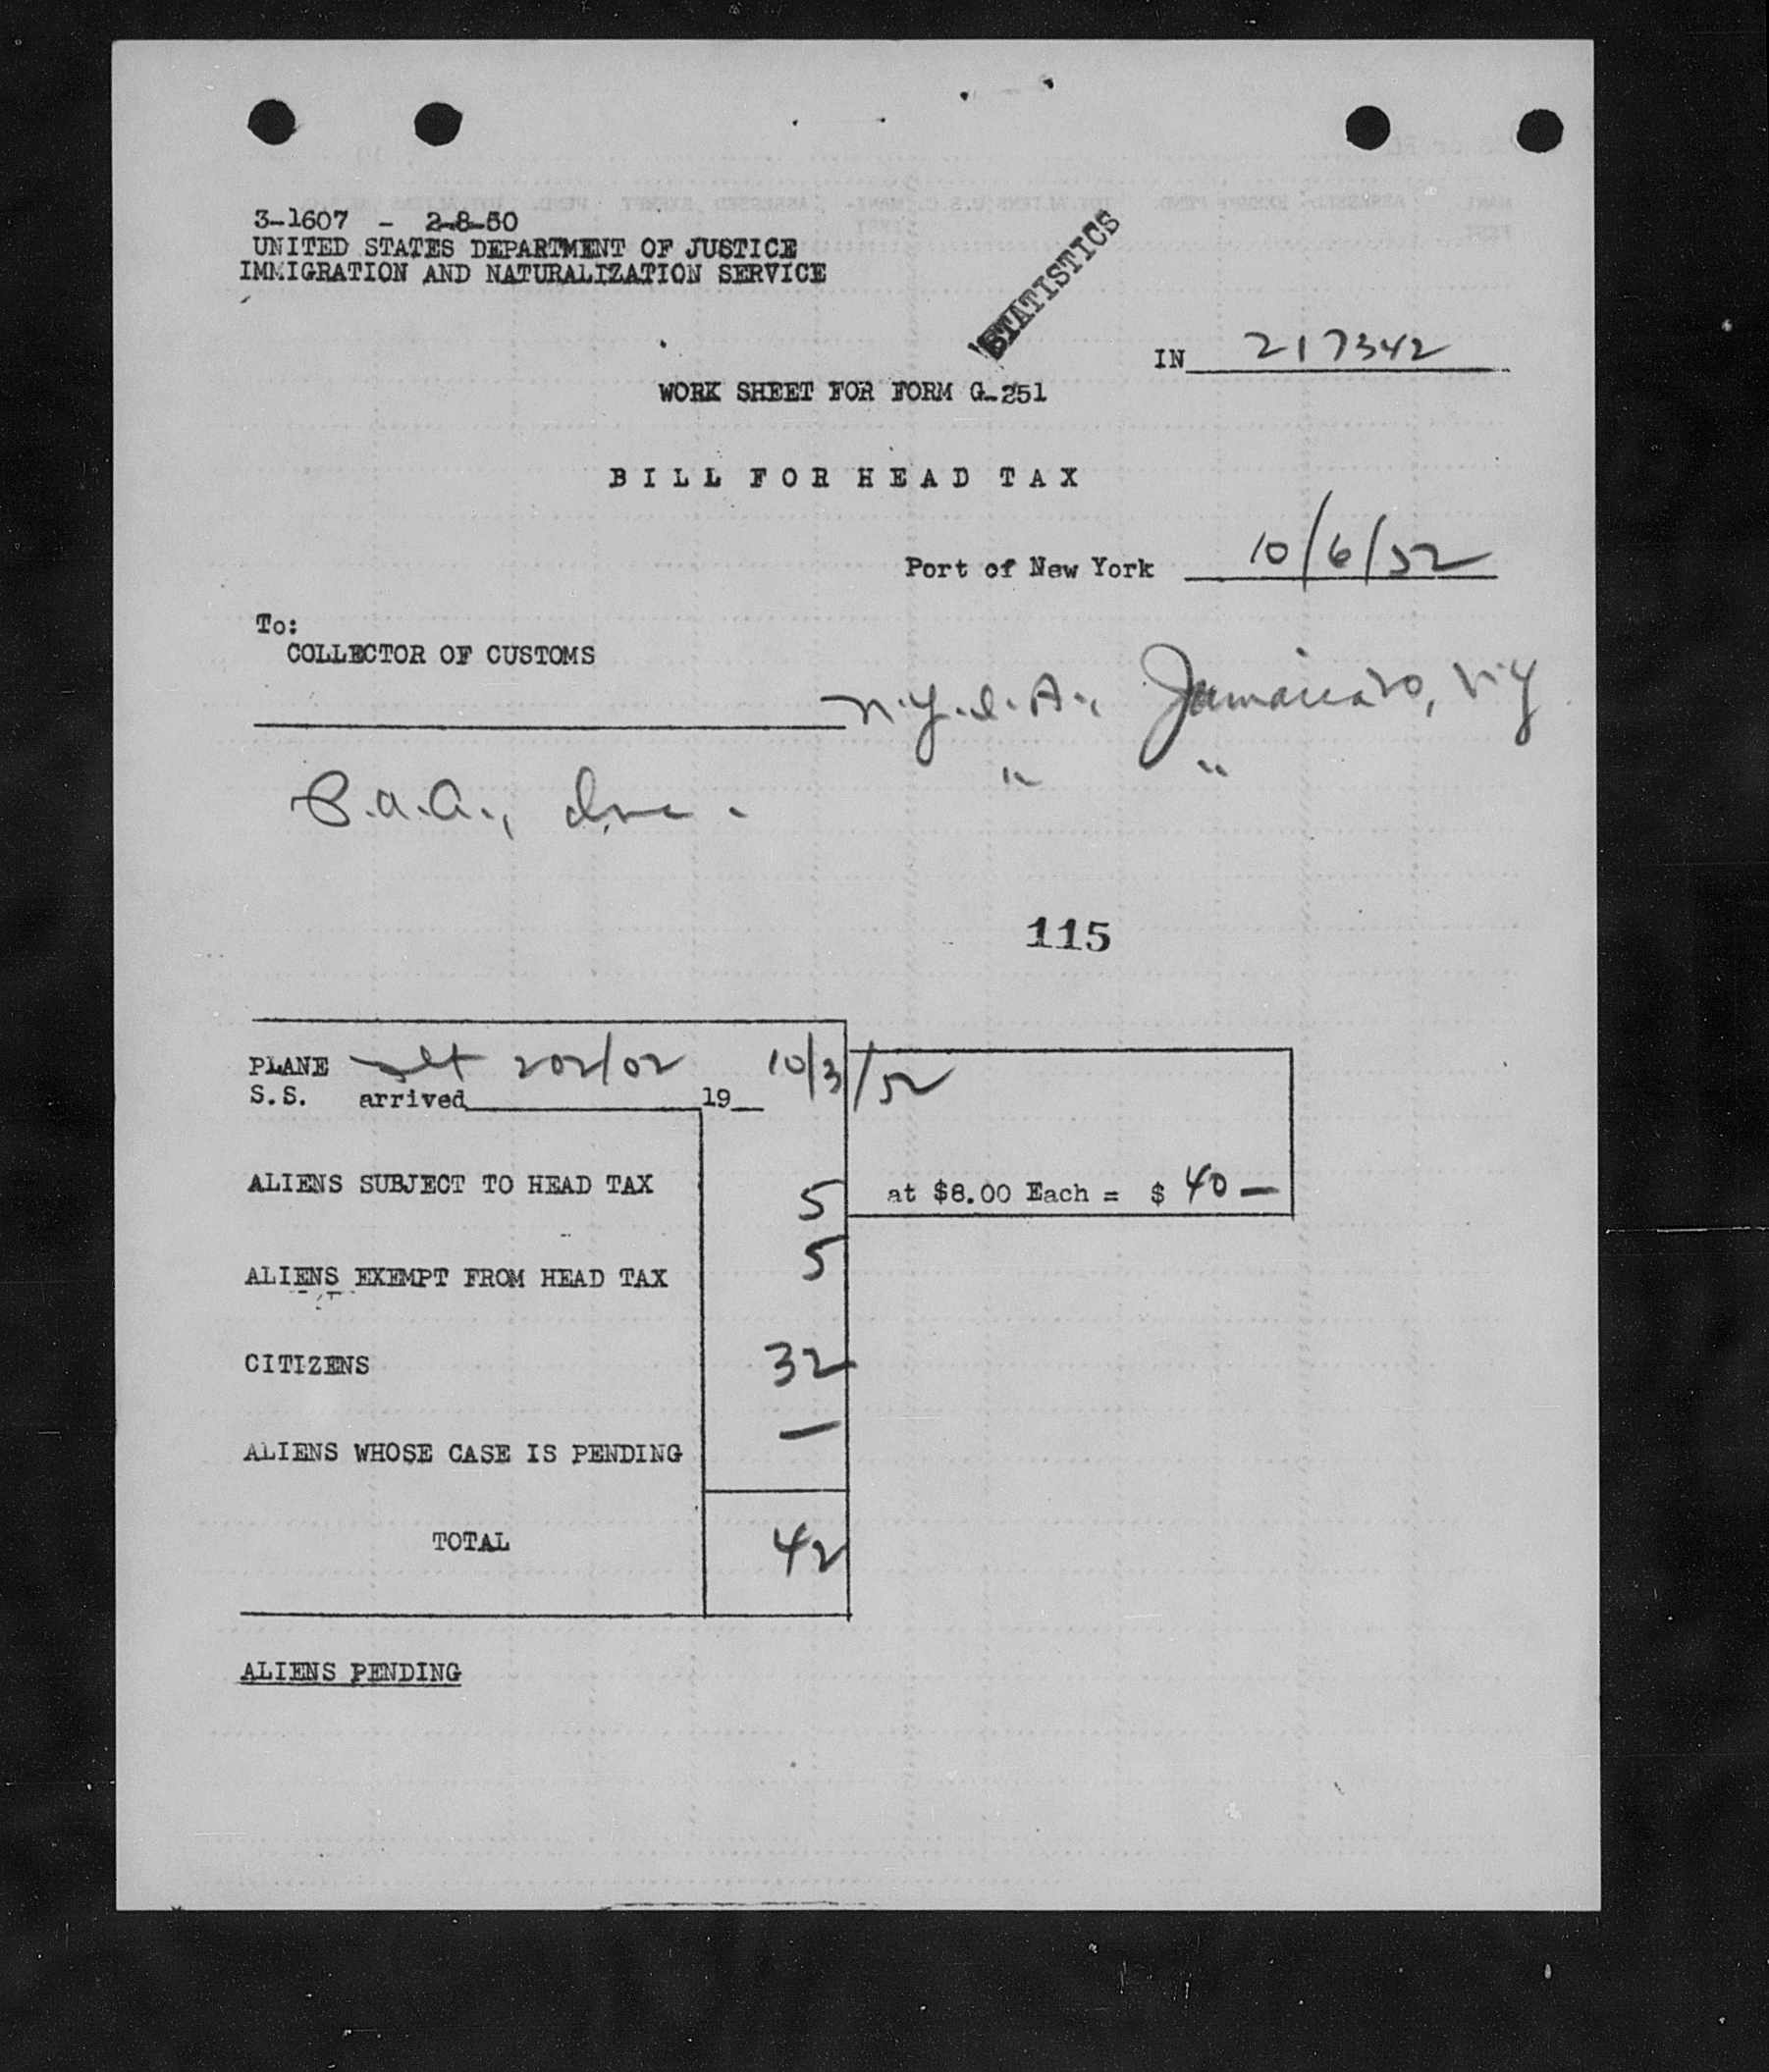 3-1607 - 2-8-50
UNITED STATES DEPARTMENT OF JUSTICE
IMMIGRATION AND NATURALIZATION SERVICE
STATISTICS
IN 217342
WORK SHEET FOR FORM G-251
BILL FOR HEAD TAX
Port of New York 10/6/52
To:
COLLECTOR OF CUSTOMS
N.Y.I.A., Jamaica, N.Y
P.A.A., Inc. " "
115
PLANE flt 202/02 10/3/52
S.S. arrived 19
ALIENS SUBJECT TO HEAD TAX 5 at $8.00 Each = $ 40 —
ALIENS EXEMPT FROM HEAD TAX 5
CITIZENS 32
ALIENS WHOSE CASE IS PENDING —
TOTAL 42
ALIENS PENDING